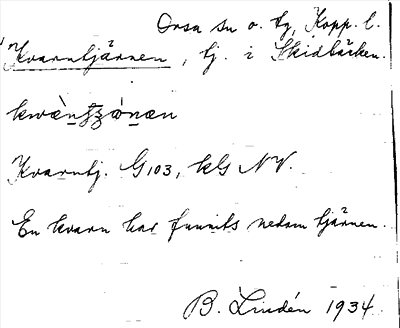 Orsa sn o. tg, Kopp. l.
Kvarntjärnen, tj. i Skidbäcken.
Kvarntj. G103, kls NV.
En kvarn har funnits nedom tjärnen.
B. Lindén 1934.